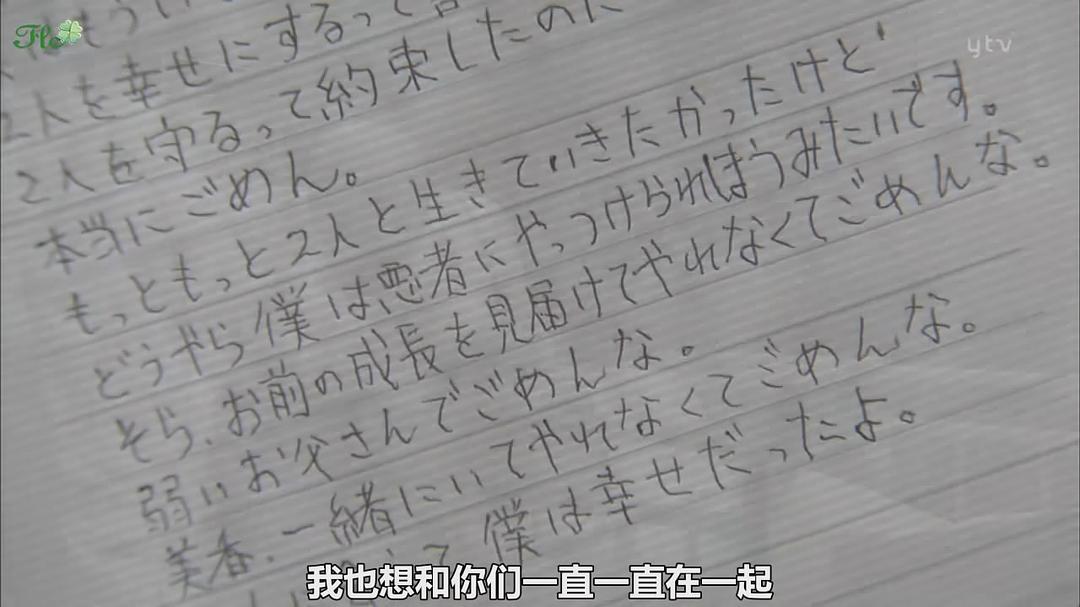 Flo
ytv
2人を幸せにするって
2人を守るって約束したのに
本当にごめん。
もっともっと2人と生きていきたかったけど
どうやら僕は悪者にやっつけられぼうみたいです。
そら、お前の成長を見届けてやれなくてごめんな。
弱いお父さんでごめんな。
美香、一緒にいてやれなくてごめんな。
て僕は幸せだったよ。
我也想和你们一直一直在一起